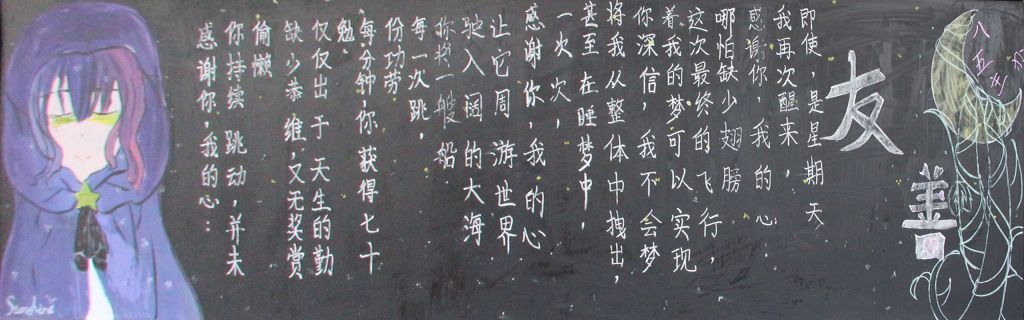 友善
感谢你,我的心:
你持续跳动,并未
偷懒
缺少恭维,又无奖赏
仅仅出于天生的勤
勉
每分钟,你获得七十
份功劳
每一次跳,
你将一艘船
驶入阔的大海
让它周游世界
感谢你,我的心
一次次,
甚至在睡梦中,
将我从整体中拽出,
你深信,我不会梦
着我的梦可以实现
这次最终的飞行,
哪怕缺少翅膀
感谢你,我的心
我再次醒来,
即使,是星期天